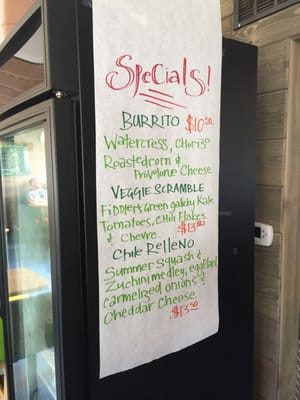 Specials!
BURRITO $10.50
Watercress, Chorizo
Roasted corn &
Provolone Cheese
VEGGIE SCRAMBLE
Fiddlers Green garlicky Kale
Tomatoes, Chili Flakes
& Chevre $13.00
Chile Relleno
Summer Squash &
Zuchini medley, eggplant
carmelized onions &
Cheddar Cheese
$13.50